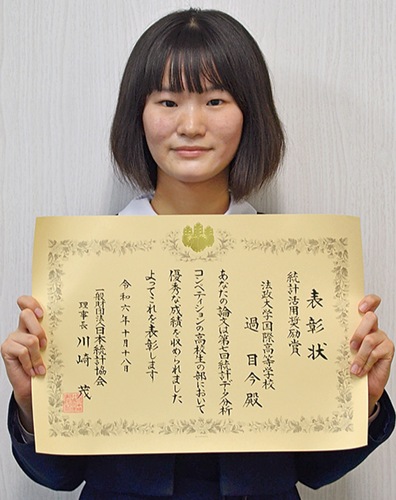 表彰状
統計活用奨励賞
法政大学国際高等学校
過目今殿
あなたの論文は第七回統計データ分析
コンペティションの高校生の部において
優秀な成績を収められました
よってこれを表彰します
令和六年十月十八日
一般財団法人日本統計協会
理事長 川崎茂